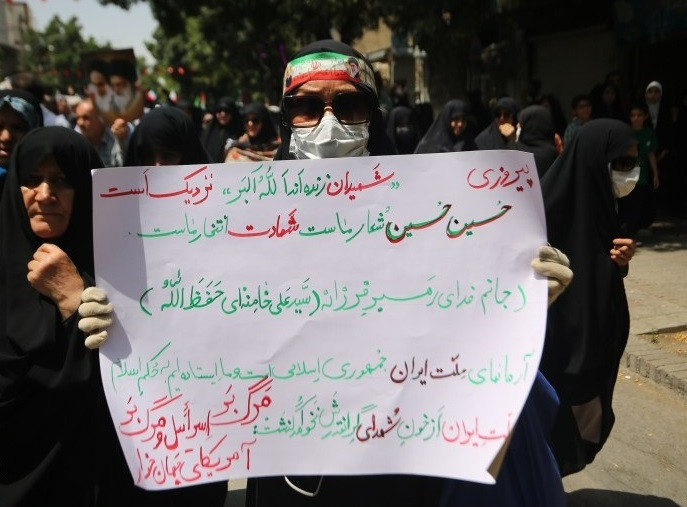 پیروزی "شهیدان زنده اند اللهُ اکبَر" نزدیک است
حُسین حُسین شُعار ماست شهادت افتخار ماست.
(جانم فدای رهبر فرزانه (سَیدعَلی خامنه ای حَفَظَ اللّٰه
آرمانهای مِلّت ایران جمهوری اِسلامی است و ما ایستاده ایم به حُکم اسلام
مِلّت ایران اَز خونِ شُهدای گرانقدرش نخواهد گذشت:
مرگ بَر اِسرائیل و مرگ بَر
آمریکای جهان خوار